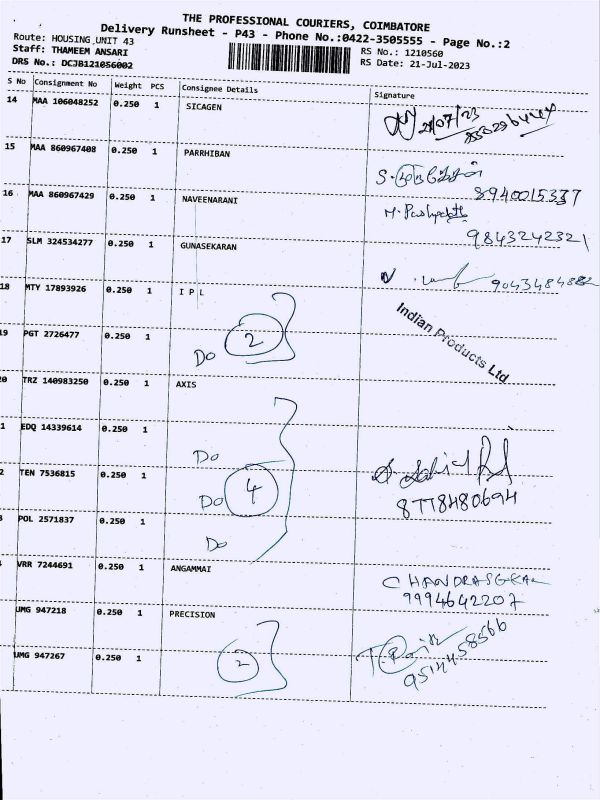 THE PROFESSIONAL COURIERS, COIMBATORE
Delivery Runsheet - P43 - Phone No.:0422-3505555 - Page No.:2
Route: HOUSING,UNIT 43
RS No.: 1210560
Staff: THAMEEM ANSARI
RS Date: 21-Jul-2023
DRS No.: DCJB121056002
S No Consignment No Weight PCS Consignee Details Signature
14 MAA 106048252 0.250 1 SICAGEN
21/07/23
15 MAA 860967408 0.250 1 PARRHIBAN
8940015337
16 MAA 860967429 0.250 1 NAVEENARANI
9843242321
17 SLM 324534277 0.250 1 GUNASEKARAN
9043484882
18 MTY 17893926 0.250 1 I P L
Indian Products Ltd
19 PGT 2726477 0.250 1
Do 2
20 TRZ 140983250 0.250 1 AXIS
1 EDQ 14339614 0.250 1
Do
2 TEN 7536815 0.250 1
Do 4
8778480694
3 POL 2571837 0.250 1
Do
VRR 7244691 0.250 1 ANGAMMAI
CHANDRASEKAR
9994642207
UMG 947218 0.250 1 PRECISION
UMG 947267 0.250 1
2
9514458566